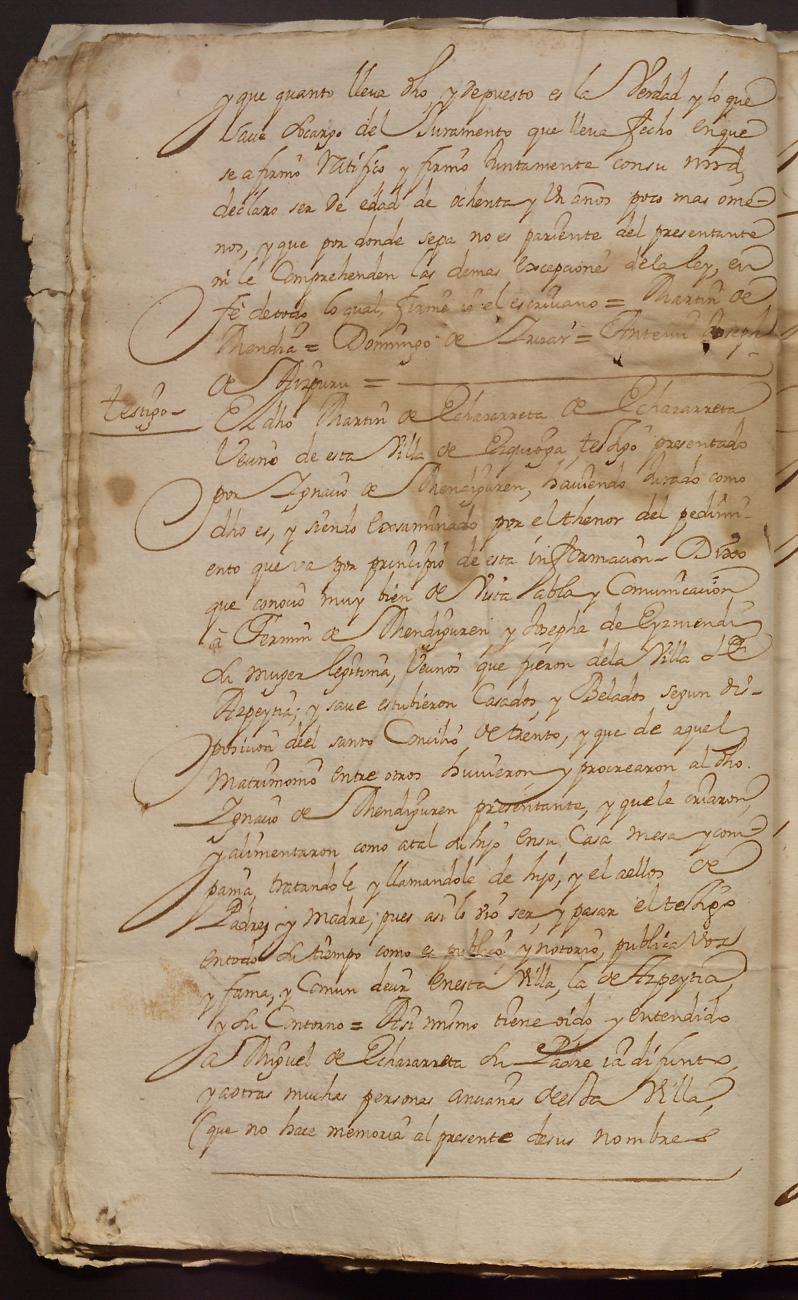 y que quanto lleva dho, y depuesto es la Verdad y lo que
save socargo del Juramento que lleva fecho en que
se afirmo Ratifico y firmo Juntamente con su mrd,
declaro ser de edad de ochenta y Un años poco mas o me-
nos, y que por donde sepa no es pariente del presentante
ni le Comprehenden las demas excepciones de la ley, en
fe de todo lo qual, firme io el escrivano = Martin de
Mendia = Domingo de = Antemi Joseph
de Aizpuru =
testigo-
El dho Martin de Echararreta de Echararreta
Vecino de esta Villa de Ezquioga testigo presentado
por Ignacio de Mendiguren, haviendo Jurado como
dho es, y siendo examinado por el thenor del pedimi-
ento que va por principio de esta informacion - Dixo
que conocio muy bien de Vista habla y Comunicacion
à Fermin de Mendiguren y Josepha de Eyzmendi
su muger legitima, Vecinos que fueron de la Villa de
Azpeytia; y save estubieron Casados y Belados segun dis-
posicion del santo Concilio de trento, y que de aquel
Matrimonio entre otros huvieron y procrearon al dho.
Ignacio de Mendiguren presentante, y que le criaron,
y alimentaron como atal su hijo en su Casa mesa y com-
pania, tratandole y llamandole de hijo, y el aellos de
Padre, y Madre, pues asi lo vio ser, y pasar el testigo
en todo su tiempo como es publico y notorio, publica Voz
y fama, y Comun decir en esta Villa, la de Azpeytia,
y su Contorno = Asi mismo tiene oido y entendido
a Miguel de Echararreta su Padre ia difunto,
y aotras muchas personas ancianas de esta Villa,
(que no hace memoria al presente de sus nombres